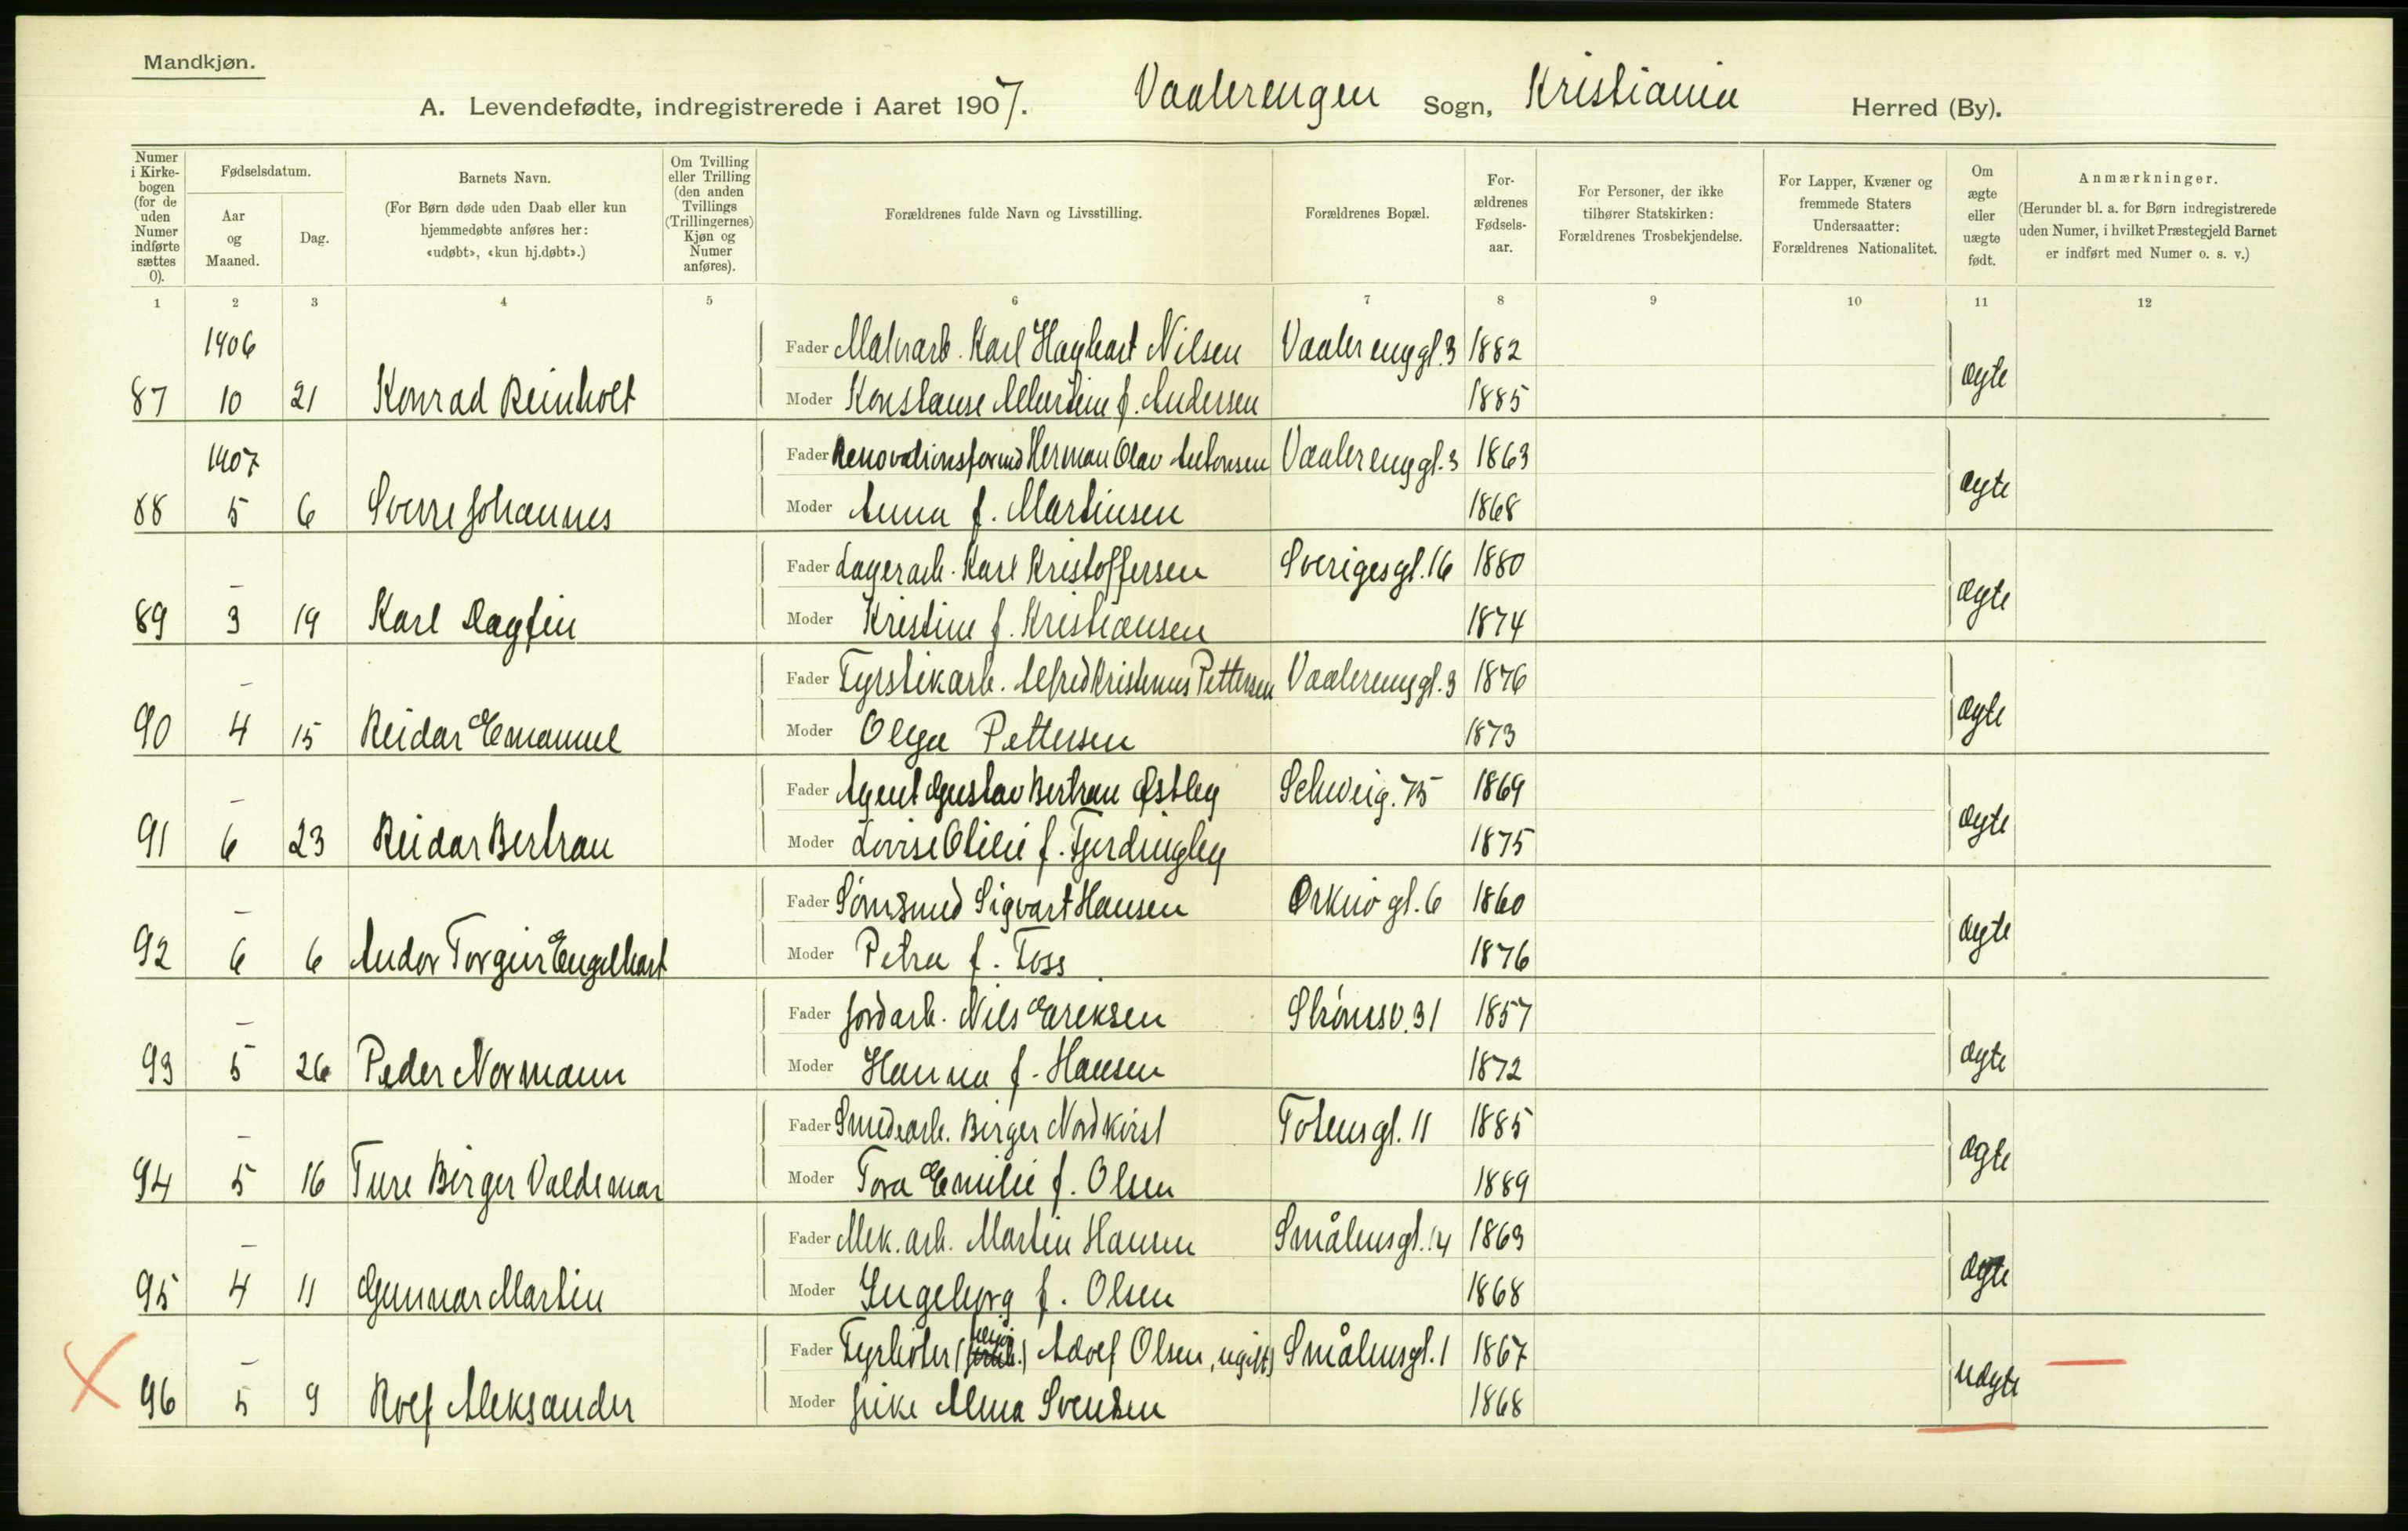 Mandkjøn.
A. Levendefødte, indregistrerede i Aaret 1907. Vaalerengen Sogn, Kristiania Herred (By).
Numer i Kirkebogen (for de uden Numer indførte sættes 0).
Fødselsdatum.
Aar og Maaned.
Dag.
Barnets Navn.
(For Børn døde uden Daab eller kun hjemmedøbte anføres her: «udøbt», «kun hj.døbt».)
Om Tvilling eller Trilling (den anden Tvillings (Trillingernes) Kjøn og Numer anføres).
Forældrenes fulde Navn og Livsstilling.
Forældrenes Bopæl.
Forældrenes Fødselsaar.
For Personer, der ikke tilhører Statskirken: Forældrenes Trosbekjendelse.
For Lapper, Kvæner og fremmede Staters Undersaatter: Forældrenes Nationalitet.
Om ægte eller uægte født.
Anmærkninger.
(Herunder bl. a. for Børn indregistrerede uden Numer, i hvilket Præstegjeld Barnet er indført med Numer o. s. v.)
1 2 3 4 5 6 7 8 9 10 11 12
1906 Fader Malerarb. Karl Haghart Nilsen Vaalerenggt. 3 1882
87 10 21 Konrad Reinholt Moder Konstanse Albertine f. Andersen 1885 ægte
1907 Fader Renovationsformd Herman Olav Antonsen Vaalerenggt. 3 1863
88 5 6 Sverre Johannes Moder Anna f. Martinsen 1868 ægte
– Fader Lagerarb. Karl Kristoffersen Sverigesgt. 16 1880
89 3 19 Karl Dagfin Moder Kristine f. Kristiansen 1874 ægte
– Fader Fyrstikarb. Alfred Kristenus Pettersen Vaalerenggt. 3 1876
90 4 15 Reidar Emanuel Moder Olga Pettersen 1873 ægte
– Fader Agent Gustav Bertran Østby Schweig. 75 1869
91 6 23 Reidar Bertran Moder Lovise Otilie f. Fjerdingby 1875 ægte
– Fader Sømsmed Sigvart Hansen Orknø gt. 6 1860
92 6 6 Andor Torgeir Engelhart Moder Petra f. Foss 1876 ægte
– Fader Jordarb. Nils Ereksen Strømsv. 31 1857
93 5 26 Peder Normann Moder Hanna f. Hansen 1872 ægte
– Fader Smedearb. Birger Nordkvist Totensgt. 11 1885
94 5 16 Ture Birger Valdemar Moder Tora Emilie f. Olsen 1889 ægte
– Fader Mek. arb. Martin Hansen Smålensgt. 14 1863
95 4 11 Gunnar Martin Moder Ingeborg f. Olsen 1868 ægte
– Fader Fyrbøter Adolf Olsen, ugift) Smålensgt. 1 1867
96 5 9 Rolf Aleksander Moder Alma Svensen 1868 uægte